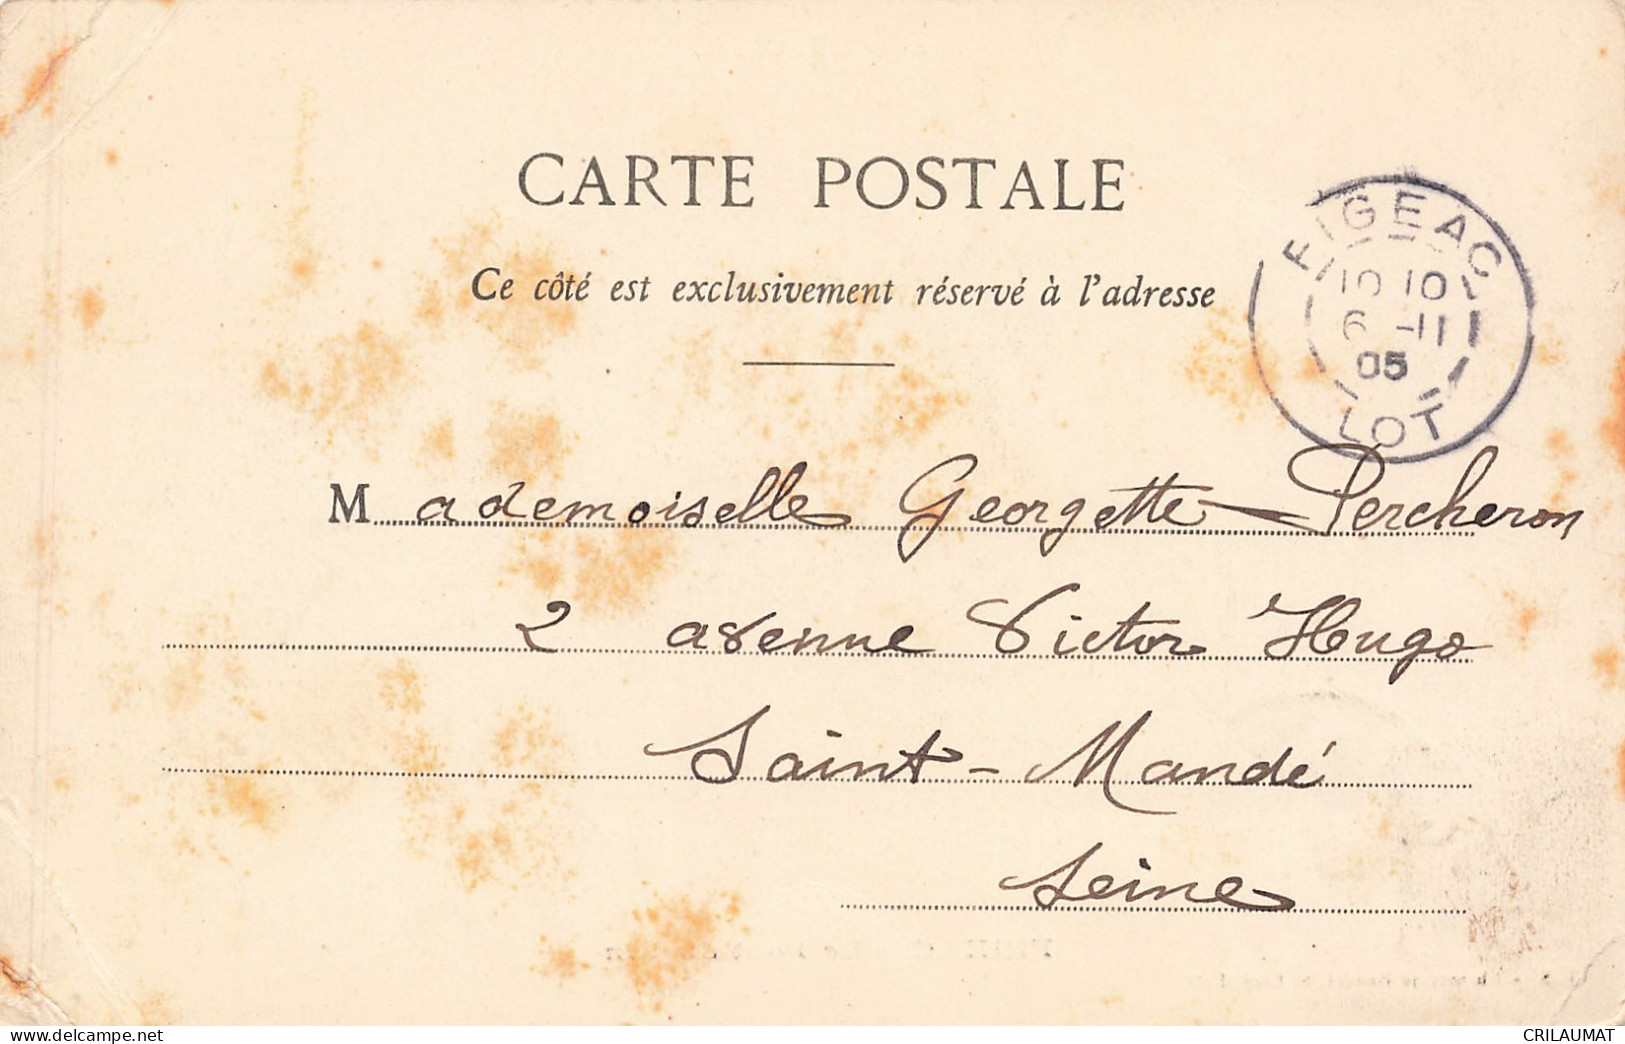 CARTE POSTALE
Ce côté est exclusivement réservé à l'adresse
FIGEAC
10 10
6 -11
05
LOT
Mademoiselle Georgette Percheron
2 avenue Victor Hugo
Saint-Mandé
Seine
delcampe.net
CRILAUMAT